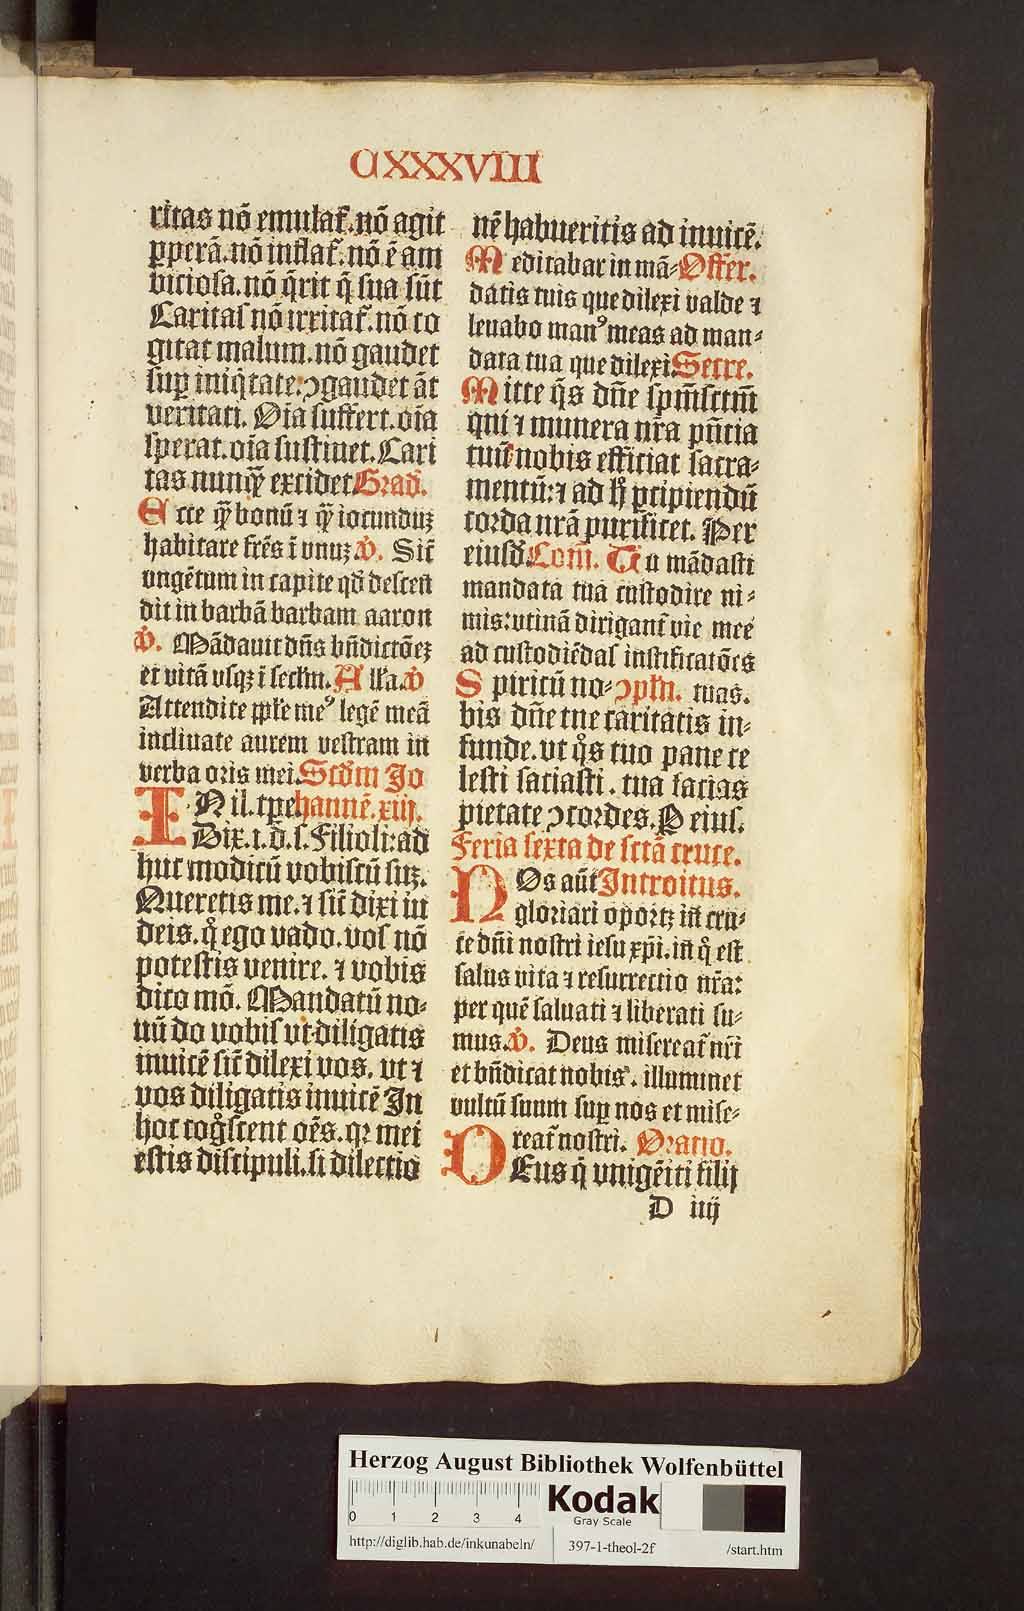 CXXXVIII
ritas nō emulat᷒. nō agit
ꝑperā. nō inflat᷒. nō ē am
biciosa. nō q̄rit q̄ sua sūt
Caritas nō irritat᷒. nō co
gitat malum. nō gaudet
suꝑ iniq̇tate: ꝯgaudet āt
veritati. Oīa suffert. oīa
sperat. oīa sustinet. Cari
tas nunqꝫ̄ excidet Grad̄.
Ecce qꝫ̄ bonū ⁊ qꝫ̄ iocunduꝫ
habitare frēs ī vnuꝫ. ꝟ. Sic̄
vngētum in capite qd̄ descen̄
dit in barbā barbam aaron
ꝟ. Mādauit dn̄s bn̄dictōeꝫ
et vitā vsqꝫ ī secl̄m. All̄a. ꝟ
Attendite ꝓpl̄e meꝰ legē meā
inclinate aurem vestram in
verba oris mei. Scd̄m Jo
IN il. tꝑe hannē. xiij.
Dix. i. d̄. s. Filioli: ad
huc modicū vobiscū suꝫ.
Queretis me. ⁊ sic̄ dixi iu
deis. q̊ ego vado. vos nō
potestis venire. ⁊ vobis
dico mō. Mandatū no-
uū do vobis vt diligatis
inuicē sic̄ dilexi vos. vt ⁊
vos diligatis inuicē In
hoc cog̊scent oēs. qꝛ mei
estis discipuli. si dilectio
nē habueritis ad inuicē.
Meditabar in mā- Offer.
datis tuis que dilexi valde ⁊
leuabo manꝰ meas ad man-
data tua que dilexi. Secre.
Mitte q̄s dn̄e sp̄m̄sctm̄
qui ⁊ munera nr̄a pn̄tia
tuū nobis efficiat sacra-
mentū: ⁊ ad h̊ ꝑcipiendū
corda nr̄a purificet. Per
eiusd̄ Com̄. Tu mādasti
mandata tua custodire ni-
mis: vtinā dirigant᷒ vie mee
ad custodiēdas iustificatōes
Spiritū no- ꝯpln̄. tuas.
bis dn̄e tue caritatis in-
funde. vt q̊s tuo pane ce
lesti saciasti. tua facias
pietate ꝯcordes. P eius.
Feria sexta de sctā cruce.
NOs aūt Introitus.
gloriari oportꝫ in̄ cru-
ce dn̄i nostri iesu xp̄i. in̄ q̊ est
salus vita ⁊ resurrectio nr̄a:
per quē saluati ⁊ liberati su-
mus. ꝟ. Deus misereat᷒ nr̄i
et bn̄dicat nobis. illuminet
vultū suum suꝑ nos et mise-
reat᷒ nostri. Oratio.
DEus q̇ vnigēiti filij
D iiij
Herzog August Bibliothek Wolfenbüttel
0 1 2 3 4
Kodak
Gray Scale
http://diglib.hab.de/inkunabeln/ 397-1-theol-2f /start.htm